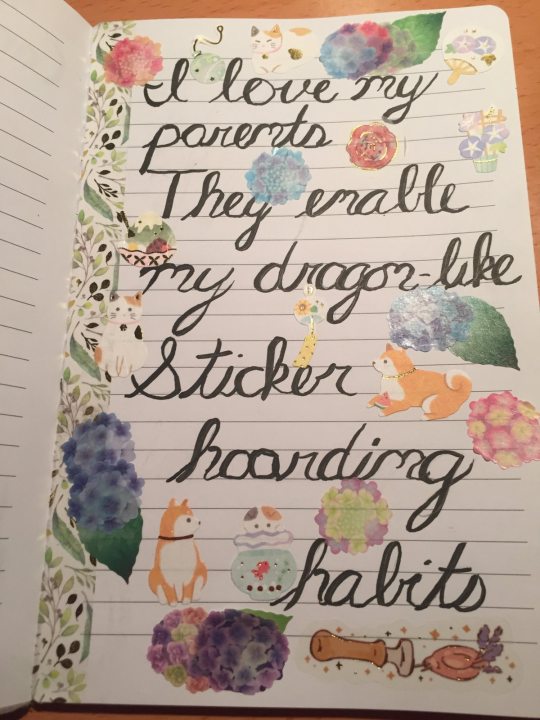 I love my
parents
They enable
my dragon-like
Sticker
hoarding
habits